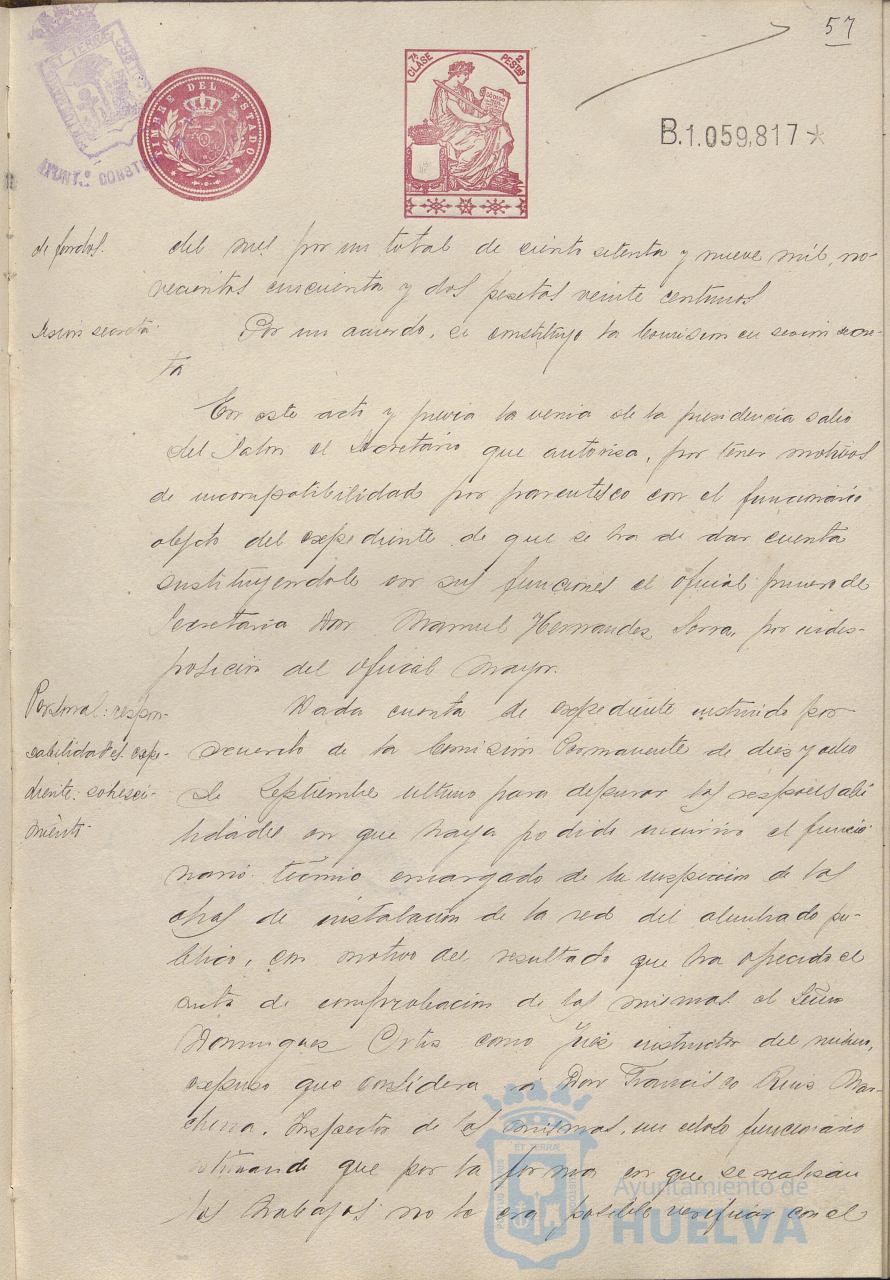 57
TIMBRE DEL ESTADO
7ª CLASE 2 PESTAS
B.1.059,817 *
AYUNTº CONST
de fondos.
del mes por un total de ciento setenta y nueve mil, no-
vecientas cincuenta y dos pesetas veinte centimos
Sesion secreta
Por un acuerdo, se constituyo la Comision en sesion secre-
ta
En este acto y previa la venia de la presidencia salio
del Salon el Secretario que autorisa, por tener motivos
de incompatibilidad por parentesco con el funcionario
objeto del expediente de que se ha de dar cuenta
sustituyendole en sus funciones el oficial primero de
Secretaria Don Manuel Hernandez Serra, por indis-
posicion del oficial mayor.
Personal: respon-
sabilidades. expe-
diente. sobresei-
miento.
Dada cuenta de expediente instruido por
acuerdo de la Comision Permanente de dies y ocho
de Septiembre ultimo para depurar las responsabi
lidades en que haya podido incurrir el funcio
nario tecnico encargado de la inspeccion de las
obras de instalacion de la red del alumbrado pu-
blico, con motivo del resultado que ha ofrecido el
acta de comprobacion de las mismas. el Señor
Dominguez Ortiz como Juez instructor del mismo,
expuso que considera a Don Francisco Ruiz Mar-
chena, Inspector de las mismas, un celoso funcionario
estimando que por la forma en que se realizan
los trabajos no le era posible verificar con el
Ayuntamiento de
HUELVA